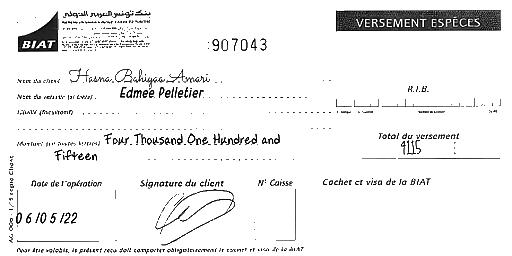 بنك تونس العربي الدولي
BIAT
VERSEMENT ESPÈCES
:907043
Nom du client Hasna Bahiyaa Amari
Nom du verseur (si tiers) Edmée Pelletier
R.I.B.
Libellé (facultatif)
Montant (en toutes lettres) Four Thousand One Hundred and
Fifteen
Total du versement
4115
Date de l'opération
Signature du client
N° Caisse
Cachet et visa de la BIAT
06/05/22
Pour être valable, le présent reçu doit comporter obligatoirement le cachet et visa de la BIAT